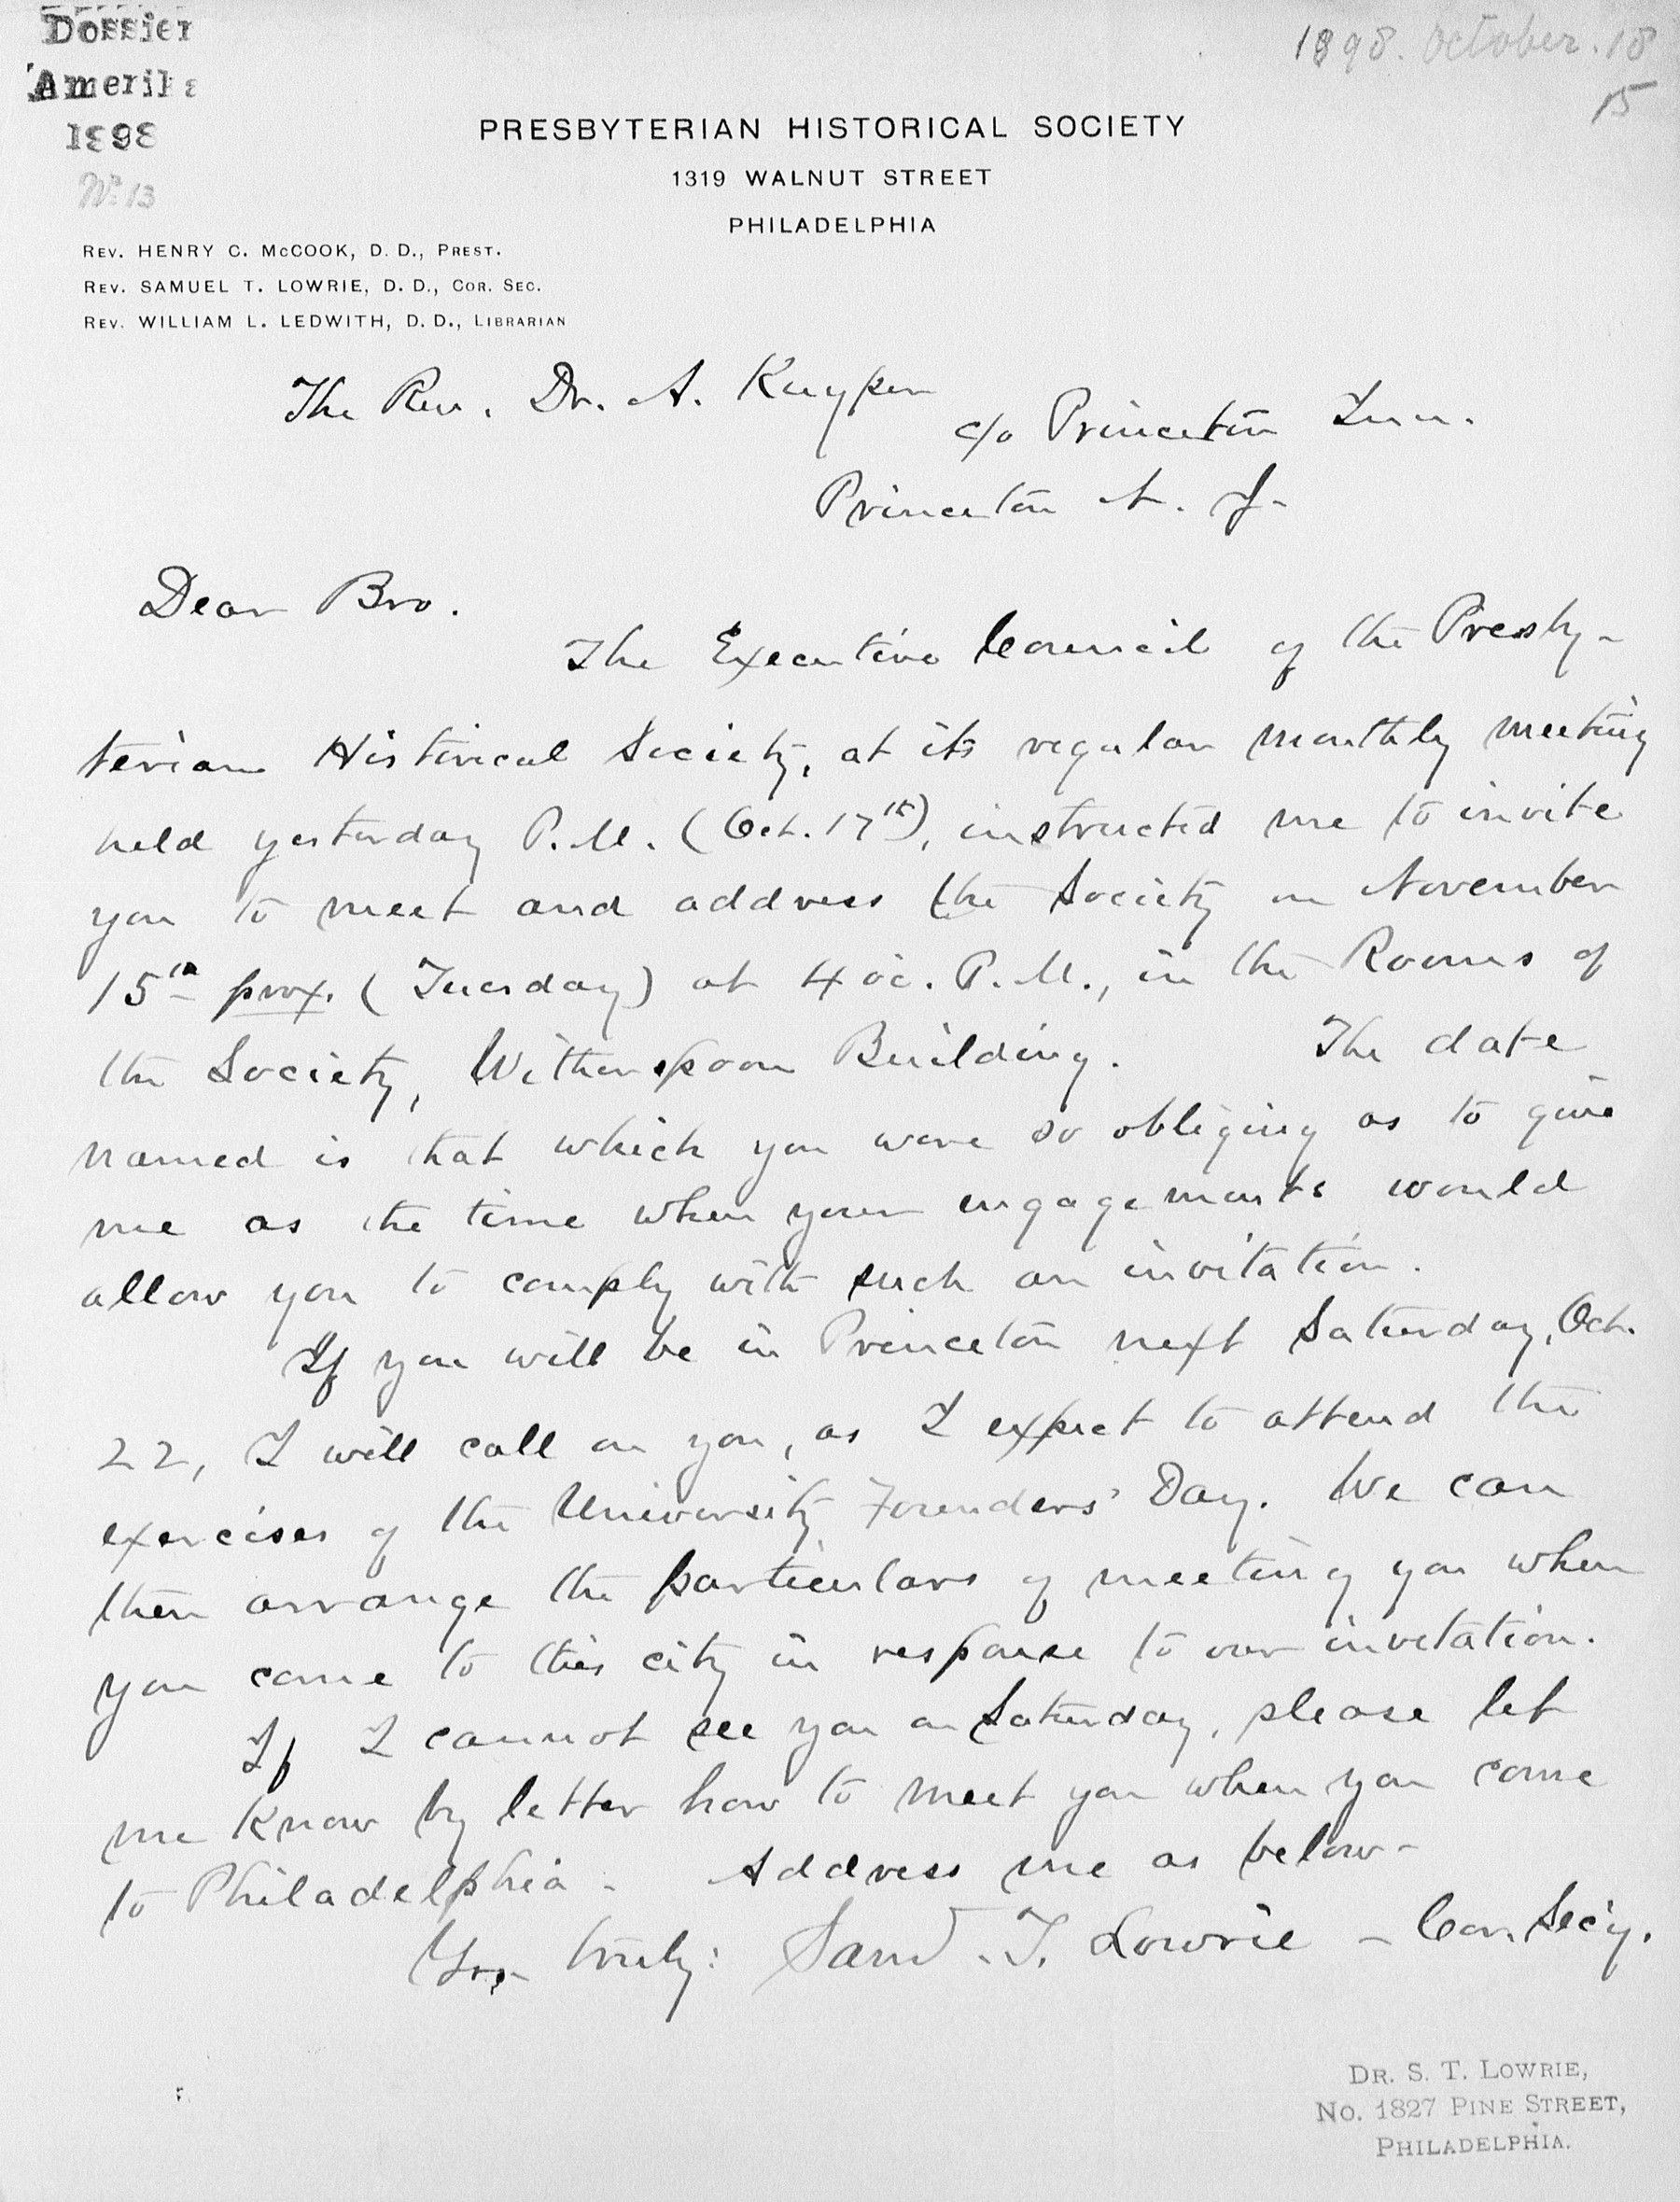 Dossier
Amerika
1898
No 13
1898. October. 18
15
PRESBYTERIAN HISTORICAL SOCIETY
1319 WALNUT STREET
PHILADELPHIA
REV. HENRY C. McCOOK, D. D., PREST.
REV. SAMUEL T. LOWRIE, D. D., COR. SEC.
REV. WILLIAM L. LEDWITH, D. D., LIBRARIAN
The Rev. Dr. A. Kuyper
c/o Princeton Inn.
Princeton N. J-
Dear Bro.
The Executive Council of the Presby-
terian Historical Society, at its regular monthly meeting
held yesterday P.M. (Oct. 17th), instructed me to invite
you to meet and address the Society on November
15th prox. (Tuesday) at 4 oc. P.M., in the Rooms of
the Society, Witherspoon Building. The date
named is that which you were so obliging as to give
me as the time when your engagements would
allow you to comply with such an invitation.
If you will be in Princeton next Saturday, Oct.
22, I will call on you, as I expect to attend the
exercises of the University Founders' Day. We can
then arrange the particulars of meeting you when
you come to this city in response to our invitation.
If I cannot see you on Saturday, please let
me know by letter how to meet you when you come
to Philadelphia. Address me as below-
Yrs truly: Saml. T. Lowrie - Cor. Secy.
DR. S. T. LOWRIE,
No. 1827 PINE STREET,
PHILADELPHIA.